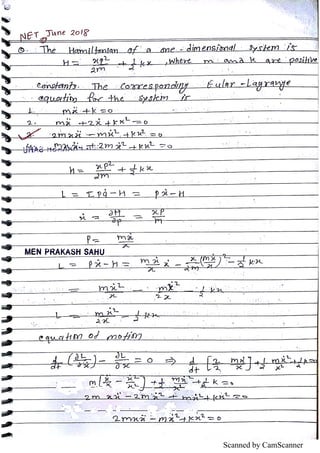 NET June 2018
Q. The Hamiltonian of a one-dimensional system is
H = xp²/2m + 1/2 kx, where m and k are positive
constants. The Corresponding Euler-Lagrange
equation for the system is
1. mẍ + k = 0
2. mẍ + 2ẋ + kx² = 0
3. 2mxẍ - mẋ² + kx² = 0
mxẍ + 2mẋ² + kx² = 0
H = xp²/2m + 1/2 kx
L = Σpq̇ - H = pẋ - H
ẋ = ∂H/∂p = xp/m
p = mẋ/x
MEN PRAKASH SAHU
L = pẋ - H = mẋ/x ẋ - x/2m (mẋ/x)² - 1/2 kx
= mẋ²/x - mẋ²/2x - 1/2 kx
L = mẋ²/2x - 1/2 kx
equation of motion
d/dt (∂L/∂ẋ) - ∂L/∂x = 0 ⇒ d/dt [2/2 mẋ/x] + 1/2 mẋ²/x² + 1/2 k = 0
m [ẍ/x - ẋ²/x²] + 1/2 mẋ²/x² + 1/2 k = 0
2mxẍ - 2mẋ² + mẋ² + kx² = 0
2mxẍ - mẋ² + kx² = 0
Scanned by CamScanner